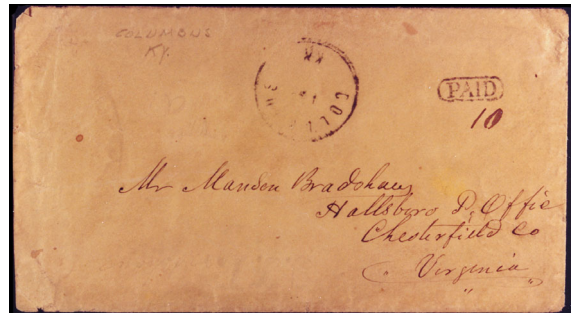 COLUMBUS
KY.
COLUMBUS KY
PAID
10
Mr Manden Bradshaw
Hallsboro P. Offic
Chesterfield Co
Virginia